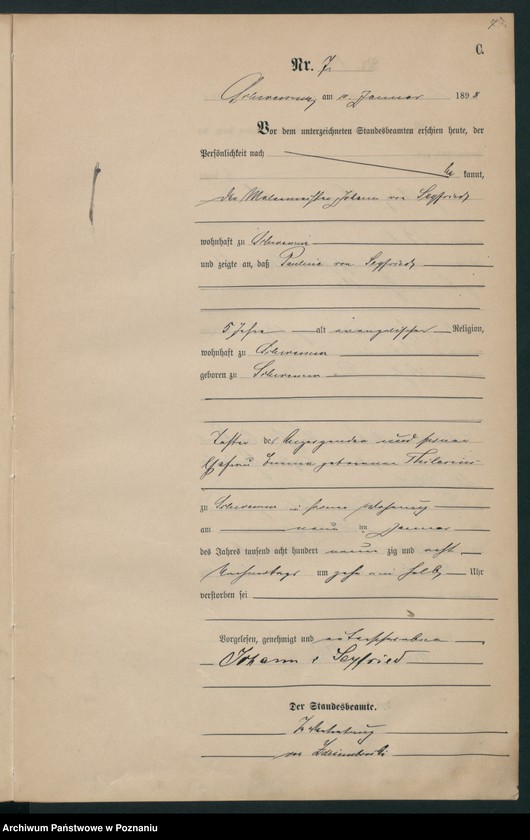 C.
Nr. 7
am Januar 1898
Vor dem unterzeichneten Standesbeamten erschien heute, der
Persönlichkeit nach
be kannt,
der Malermeister Johann von Seyfried
wohnhaft zu Schwersenz
und zeigte an, daß Pauline von Seyfried
5 Jahre alt evangelischer Religion,
wohnhaft zu Schwersenz
geboren zu Schwersenz
Tochter des Anzeigenden und seiner
Ehefrau Emma geborenen
zu Schwersenz in seiner Wohnung
am neun ten Januar
des Jahres tausend acht hundert neun zig und acht
Nachmittags um zehn ein halb Uhr
verstorben sei
Vorgelesen, genehmigt und unterschrieben
Johann v Seyfried
Der Standesbeamte.
In Vertretung
Archiwum Państwowe w Poznaniu